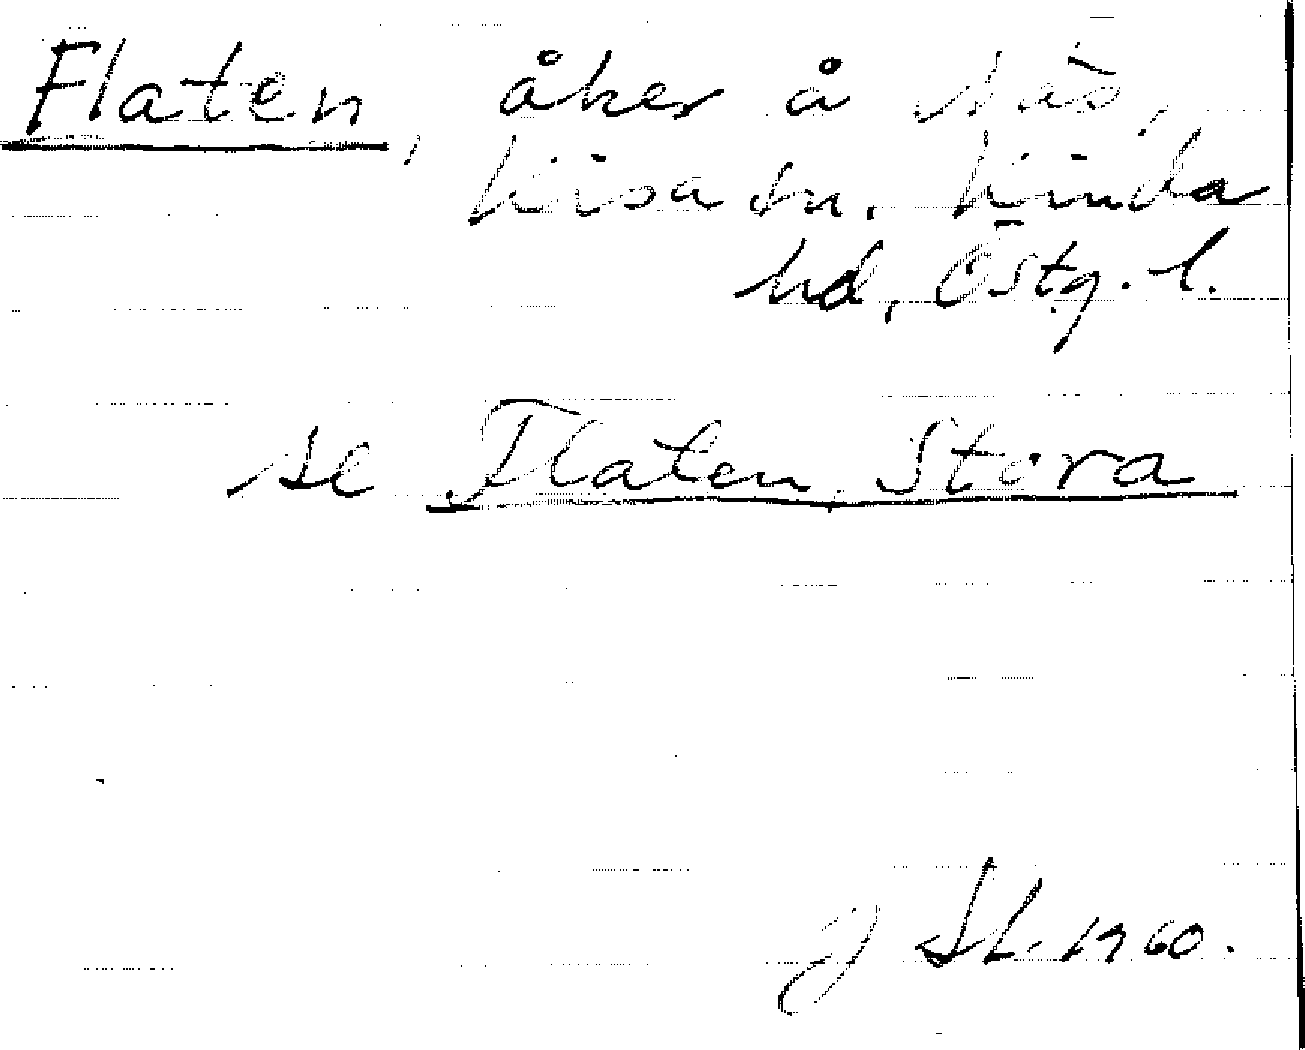 Flaten, åker å Näs,
Kisa sn. Kinda
hd, Östg. l.
se Flaten, Stora
1960.